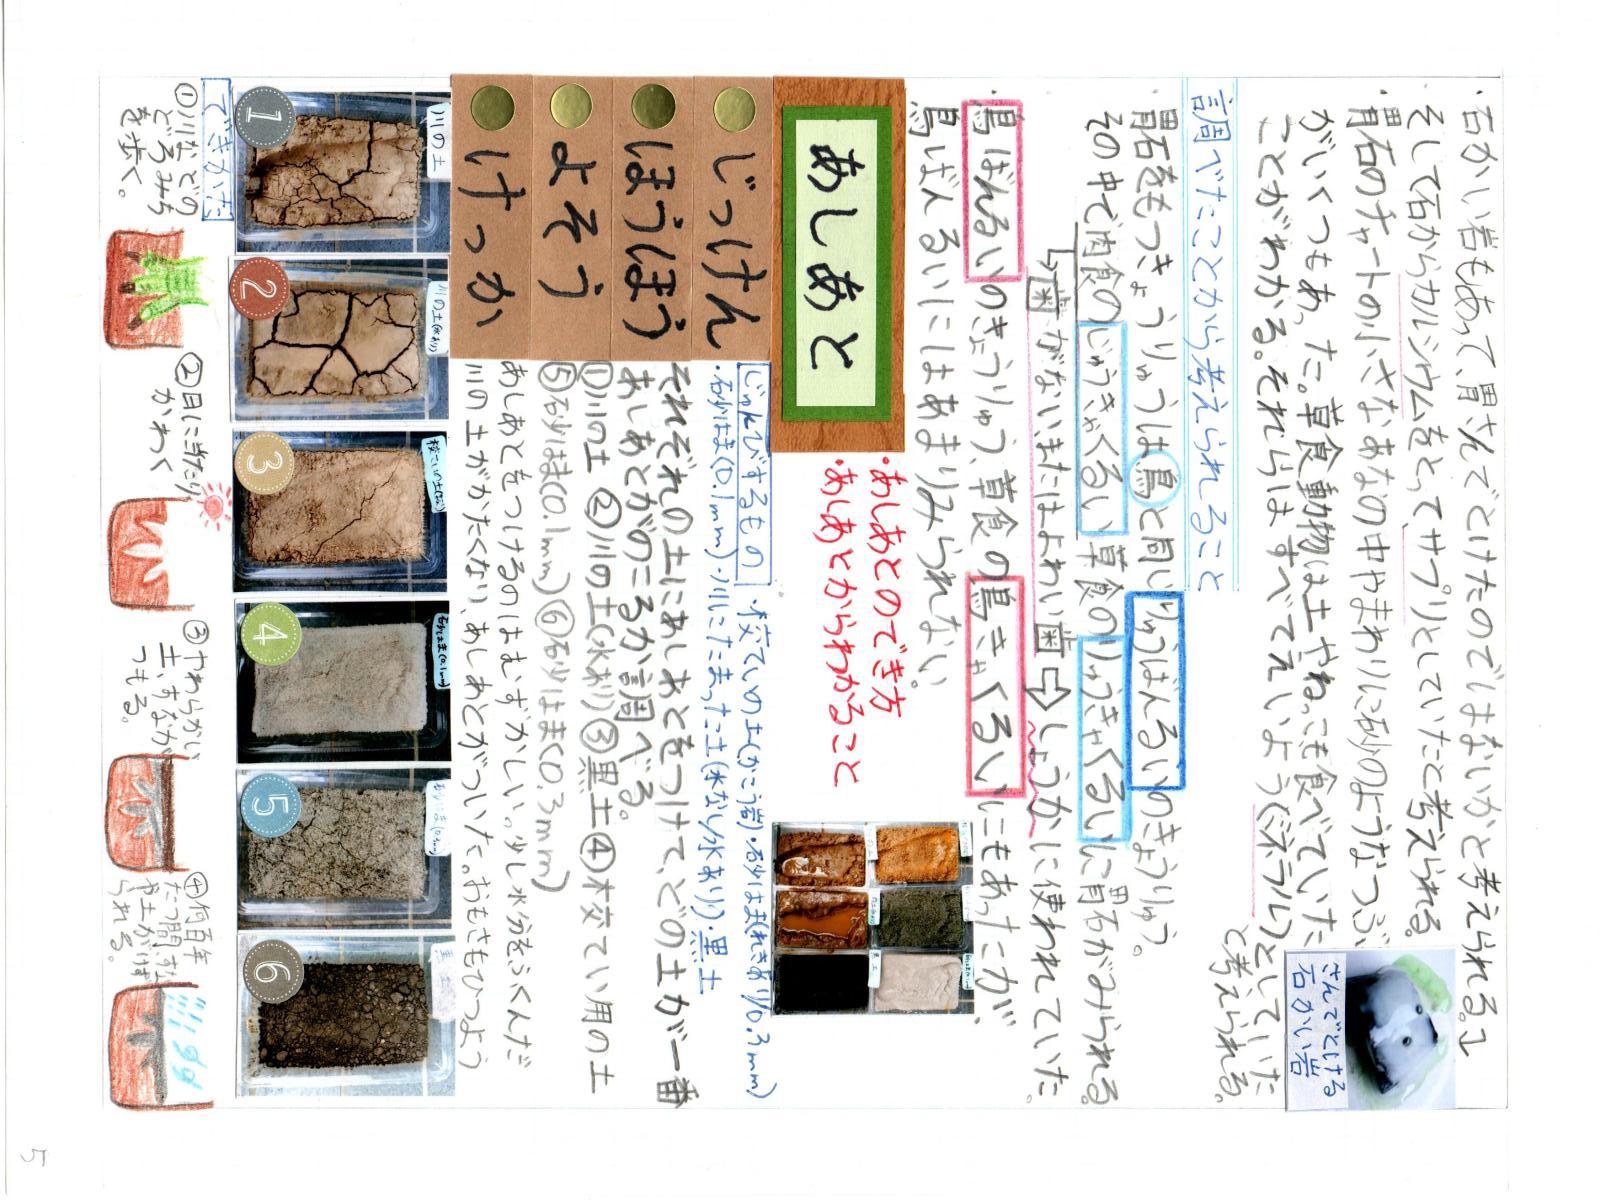 ・石かい岩もあって、胃さんでとけたのではないかと考えられる。
そして石からカルシウムをとってサプリとしていたと考えられる。
・胃石のチャートの小さなあなの中やまわりに砂のようなつぶ
がいくつもあった。草食動物は土やねっこも食べていた
ことがわかる。それらはすべてえいよう(ミネラル)としていた
と考えられる。
さんでとける
石かい岩
調べたことから考えられること
胃石をもつきょうりゅうは鳥と同じりゅうばんるいのきょうりゅう。
その中で肉食のじゅうきゃくるい草食のりゅうきゃくるいに胃石がみられる。
歯がないまたはよわい歯⇨しょうかに使われていた。
・鳥ばんるいのきょうりゅう、草食の鳥きゃくるいにもあったが、
鳥ばんるいにはあまりみられない。
あしあと
・あしあとのでき方
・あしあとからわかること
じっけん
ほうほう
よそう
けっか
じゅんびするもの
・校ていの土(かこう岩)・砂はま(れきあり/0.3mm)
・砂はま(0.1mm)・川にたまった土(水なし/水あり)・黒土
それぞれの土にあしあとをつけて、どの土が一番
あしあとがのこるか調べる。
①川の土 ②川の土(水あり)③黒土④校てい用の土
⑤砂はま(0.1mm)⑥砂はま(0.3mm)
あしあとをつけるのはむずかしい。少し水分をふくんだ
川の土がかたくなり、あしあとがついた。おもさもひつよう
1
川の土
2
川の土(水あり)
3
4
砂はま(0.1mm)
5
6
できかた
①川などの
どろみち
を歩く。
②日に当たり
かわく
③やわらかい
土、すなが
つもる。
④何百年
たつ間に土
や土がけず
られる。
5